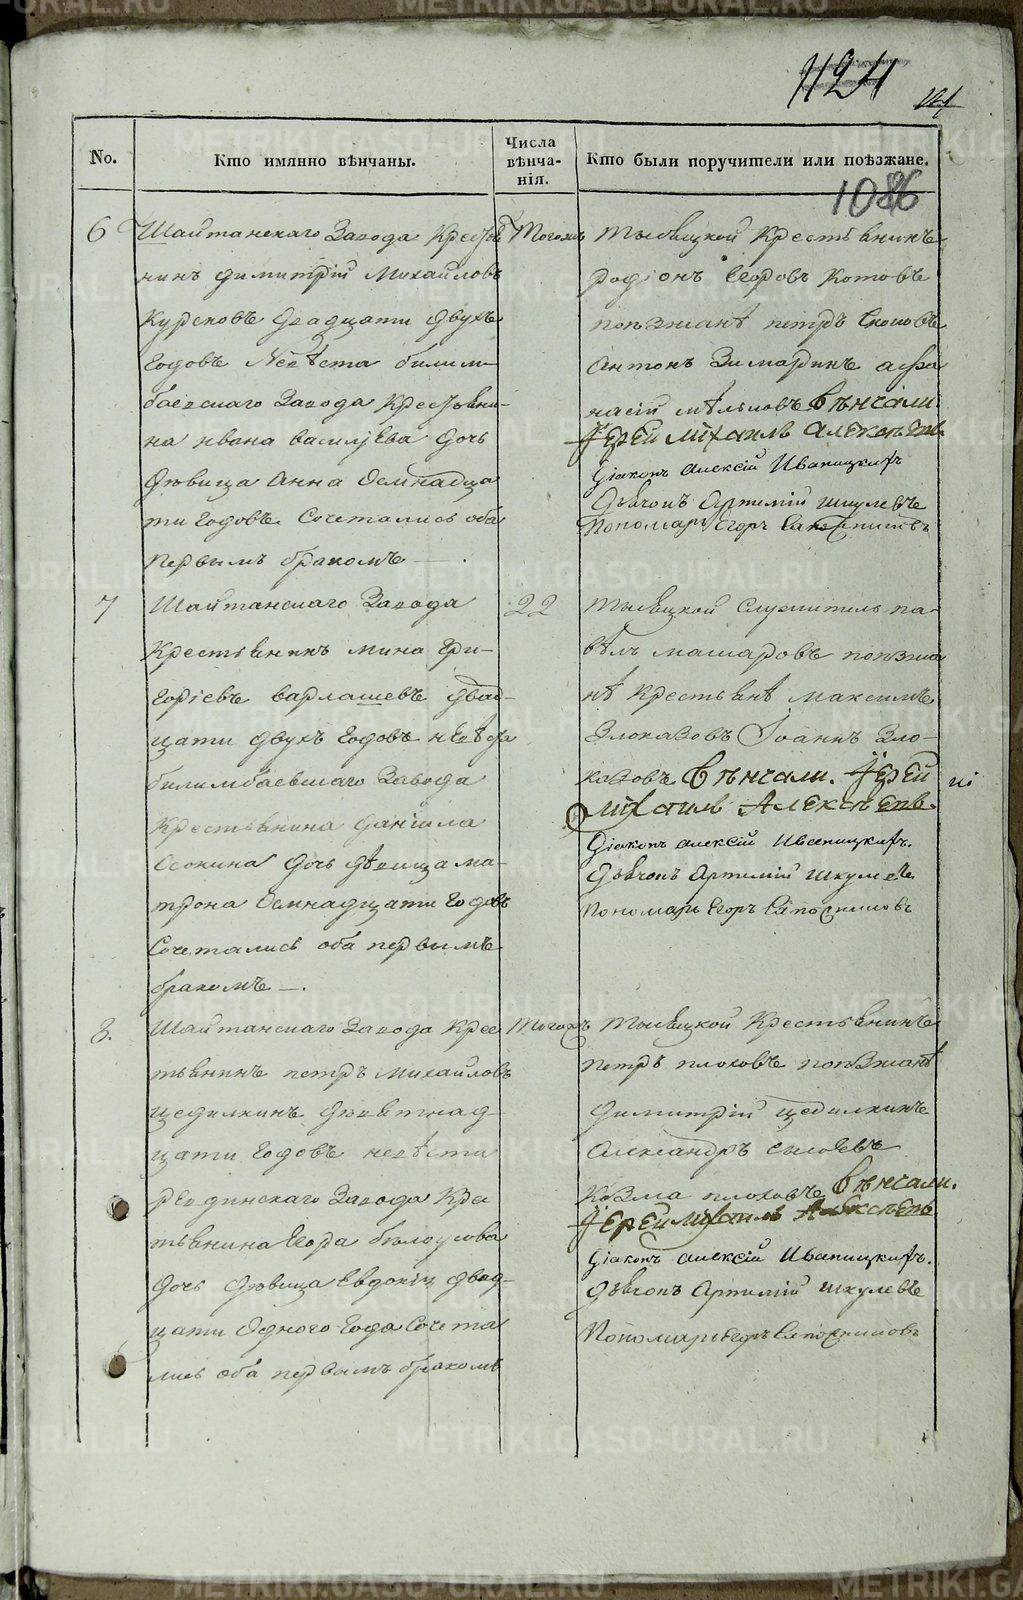 124
No.
Кто имянно вѣнчаны.
Числа вѣнча-нія.
Кто были поручители или поѣзжане.
1086
6
Шайтанскаго Завода Кресть
янинъ Димитрій Михайловъ
Курсковъ Двадцати двухъ
Годовъ Невѣста билим-
баевскаго Завода Крестьяни-
на Ивана Васильева дочь
Дѣвица Анна Осмнадца
ти Годовъ Сочетались оба
первымъ бракомъ
Тогожъ
Тысяцкой Крестьянинъ
Родіонъ Егоровъ Котовъ
поѣзжанѣ петръ
Антонъ Зимаринъ афа
насій вѣнчали
Іерей Михаилъ Алексѣевъ
Діаконъ Алексій Иваницкихъ
Дьячокъ Артемій Шкулевъ
Пономарь Егоръ Сапожниковъ
7
Шайтанскаго Завода
Крестьянинъ мина Гри-
горіевъ варлашевъ двад-
цати двухъ Годовъ невѣста
билимбаевскаго Завода
Крестьянина Даніила
Осокина дочь дѣвица ма-
трона Осмнадцати Годовъ
Сочетались оба первымъ
бракомъ
22
Тысяцкой Служитель па-
вѣлъ машаровъ поѣзжа
нѣ Крестьянѣ максимъ
Злоказовъ Іоаннъ Зло-
казовъ вѣнчали. Іерей
Михаилъ Алексѣевъ.
Діаконъ Алексій Иваницкихъ.
Дьячокъ Артемій Шкулевъ
Пономарь Егоръ Сапожниковъ
8.
Шайтанскаго Завода Крес
тьянинъ петръ михайловъ
щедилкинъ Девятнад-
цати Годовъ невѣста
ревдинскаго Завода Кре
тьянина Егора белоусова
дочь Дѣвица Евдокія двад-
цати Одного Года Сочета
лись оба первымъ бракомъ
Тогожъ
Тысяцкой Крестьянинъ
петръ плоховъ поѣзжанѣ
Димитрій щедилкинъ
Александръ
Козма плоховъ вѣнчали.
Іерей Михаилъ Алексѣевъ
Діаконъ Алексій Иваницкихъ.
Дьячокъ Артемій Шкулевъ
Пономарь Егоръ Сапожниковъ
METRIKI.GASO-URAL.RU